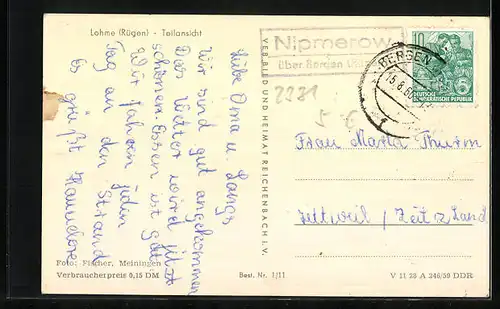 Lohme (Rügen) - Teilansicht
Liebe Oma u.
Wir sind gut angekommen
Das Wetter wird jetzt
schönen Essen ist gut
Wir fahren jeden
Tag an den Strand
Es grüßt Hannelore
Foto: Fischer, Meiningen
Verbraucherpreis 0,15 DM
Best. Nr. 1/11
VEB BILD UND HEIMAT REICHENBACH I. V.
Nipmerow
über Bergen (Rüg)
BERGEN
10
DEUTSCHE
DEMOKRATISCHE REPUBLIK
2231
Frau Marta Thurm
/ Zeitz Land
V 11 28 A 346/59 DDR